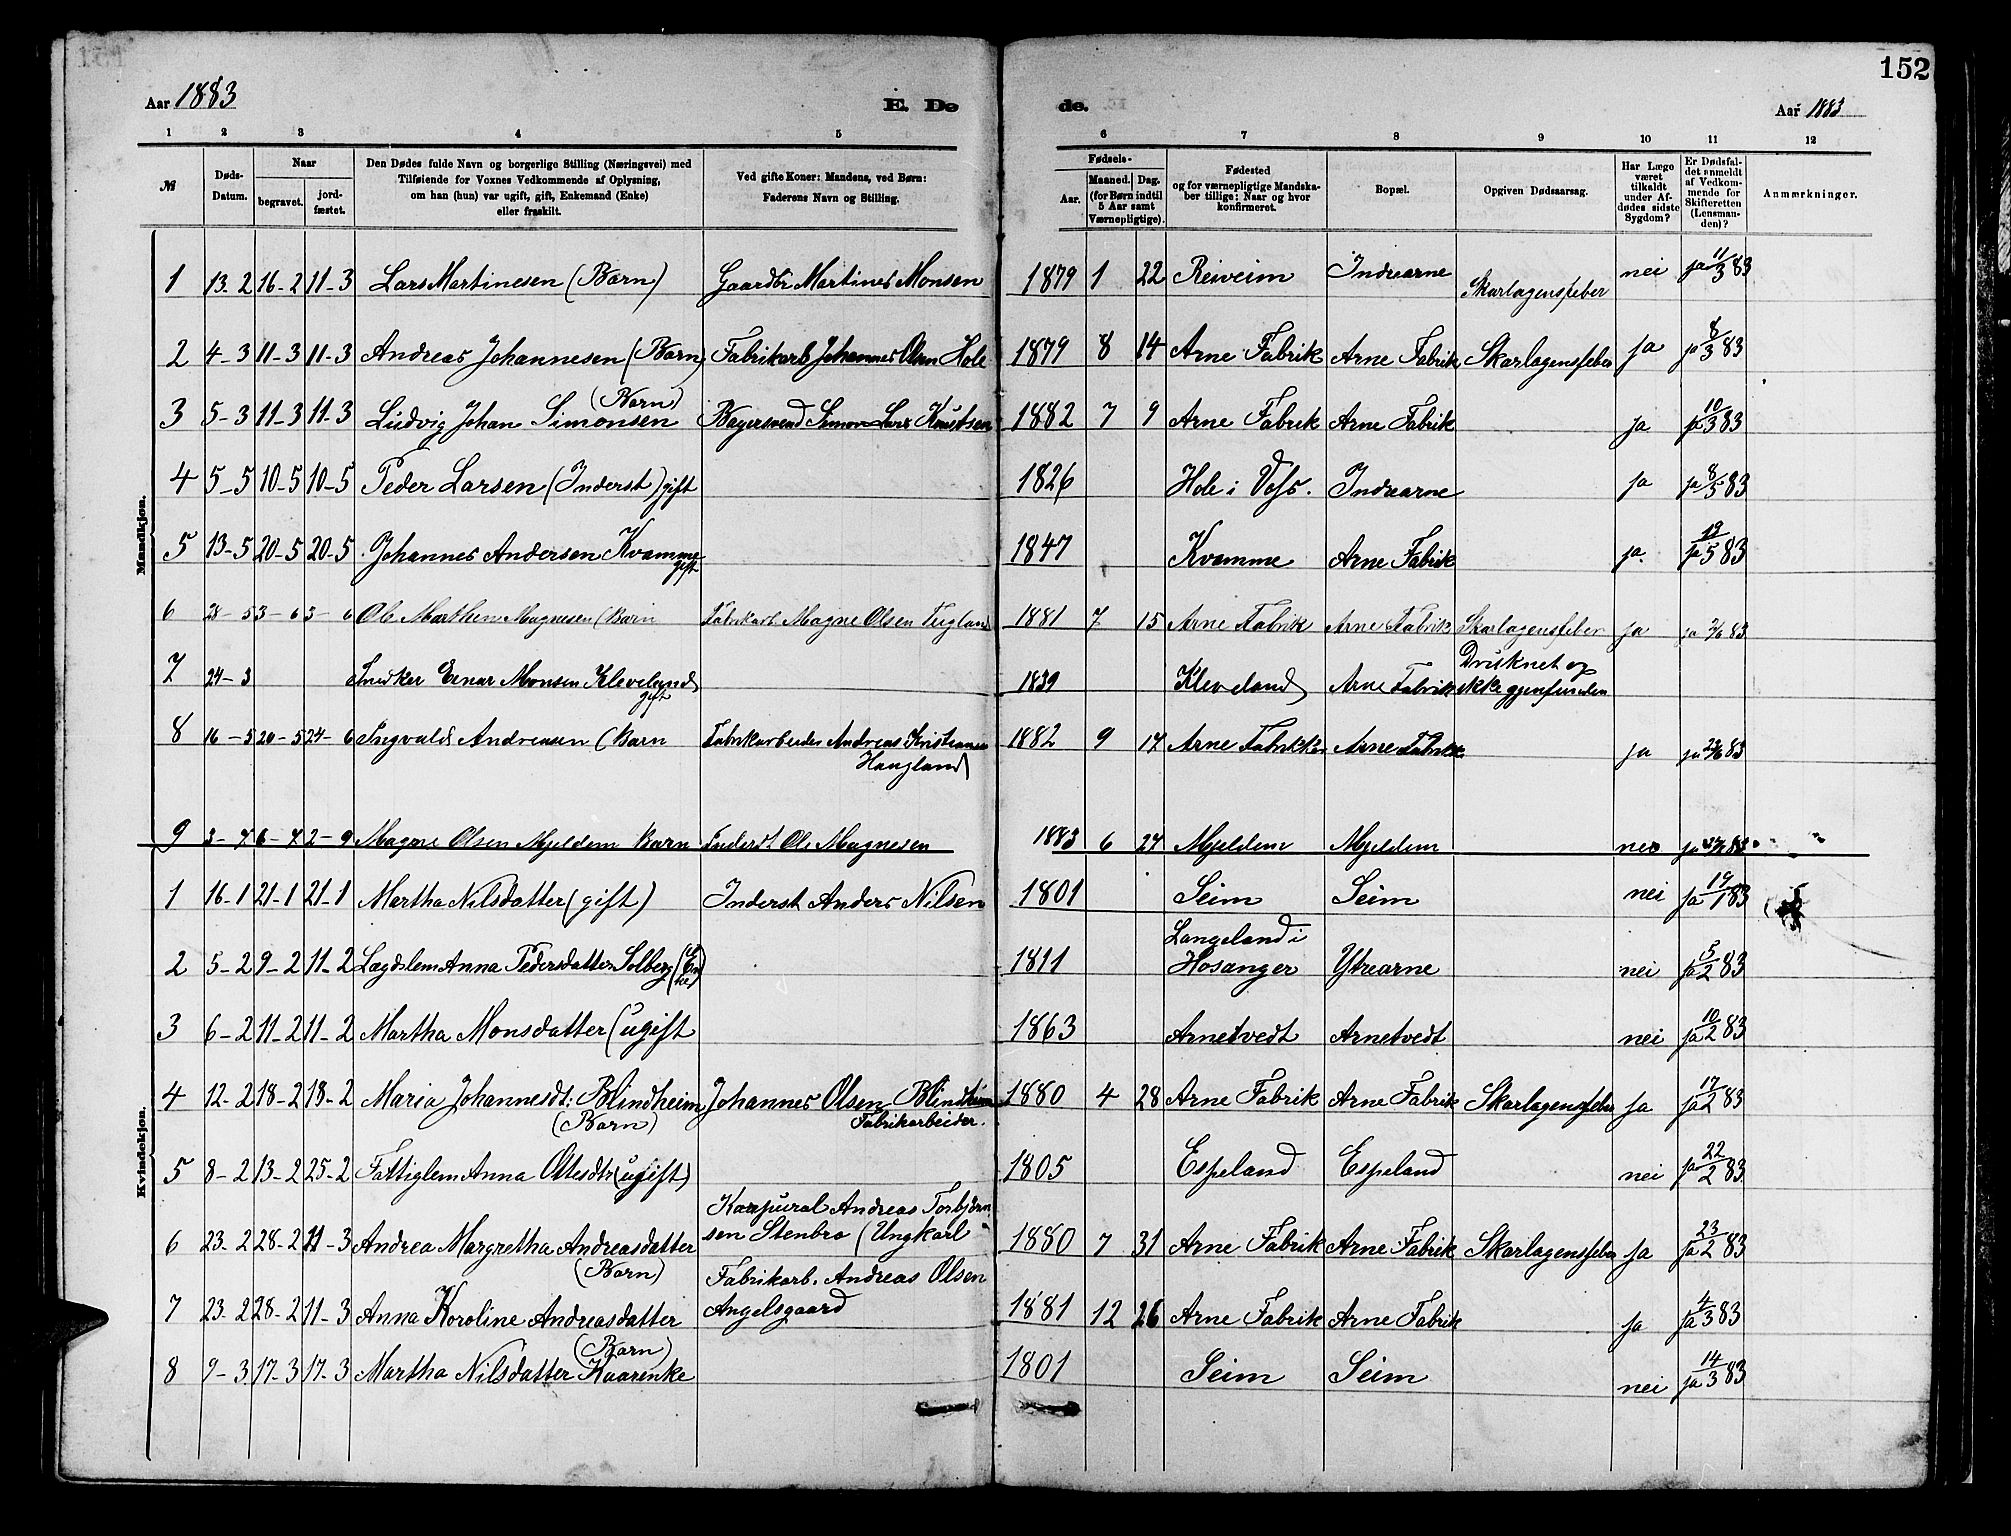 152
Aar 1883 E. Dø de. Aar 1883
1 2 3 4 5 6 7 8 9 10 11 12
№
Døds-Datum.
Naar
begravet.
jordfæstet.
Den Dødes fulde Navn og borgerlige Stilling (Næringsvei) med
Tilføiende for Voxnes Vedkommende af Oplysning,
om han (hun) var ugift, gift, Enkemand (Enke)
eller fraskilt.
Ved gifte Koner: Mandens, ved Børn:
Faderens Navn og Stilling.
Fødsels-
Aar.
Maaned. Dag.
(for Børn indtil
5 Aar samt
Værnepligtige).
Fødested
og for værnepligtige Mandska-
ber tillige: Naar og hvor
konfirmeret.
Bopæl.
Opgiven Dødsaarsag.
Har Læge
været
tilkaldt
under Af-
dødes sidste
Sygdom?
Er Dødsfal-
det anmeldt
af Vedkom-
mende for
Skifteretten
(Lensman-
den)?
Anmærkninger.
Mandkjøn.
1 13-2 16-2 11-3 Lars Martinesen (Barn) Gaardbr Martines Monsen 1879 1 22 Reiveim Indrearne Skarlagensfeber nei ja 11/3 83
2 4-3 11-3 11-3 Andreas Johannesen (Barn) Fabrikarb Johannes Olsen Hole 1879 8 14 Arne Fabrik Arne Fabrik Skarlagensfeber ja ja 8/3 83
3 5-3 11-3 11-3 Ludvig Johan Simonsen (Barn) Bagersvend Simon Lars Knutsen 1882 7 9 Arne Fabrik Arne Fabrik ja ja 10/3 83
4 5-5 10-5 10-5 Peder Larsen (Inderst) gift 1826 Hole i Voss. Indrearne ja ja 8/5 83
5 13-5 20-5 20-5 Johannes Andersen Kvamme gift 1847 Kvamme Arne Fabrik ja. ja 19/5 83
6 28-5 3-6 3-6 Ole Marthin Magnesen (Barn Fabrikarb. Magne Olsen 1881 7 15 Arne Fabrik Arne Fabrik Skarlagensfeber ja ja 2/6 83
7 24-3 Snedker Einar Monsen Kleveland gift 1839 Kleveland Arne Fabrik Drusknet og ikke gjenfunden
8 16-5 20-5 24-6 Ingvald Andreasen (Barn Fabrikarbeider Andreas Kristiansen Haugland 1882 9 17 Arne Fabrikken Arne Fabrik ja ja 83
9 3-7 6-7 2-9 Magne Olsen Mjeldem Barn Inderst Ole Magnesen 1883 6 24 Mjeldem Mjeldem nei ja 83
Kvindekjøn.
1 16-1 21-1 21-1 Martha Nilsdatter (gift) Inderst Anders Nilsen 1801 Seim Seim nei ja 19/1 83
2 5-2 9-2 11-2 Lægdslem Anna Pedersdatter Solberg (Enke) 1811 Langeland i Hosanger Ytrearne nei ja 5/2 83
3 6-2 11-2 11-2 Martha Monsdatter (ugift 1863 Arnetvedt Arnetvedt nei ja 10/2 83
4 12-2 18-2 18-2 Maria Johannesdt: Blindheim (Barn) Johannes Olsen Blindheim Fabrikarbeider. 1880 4 28 Arne Fabrik Arne Fabrik Skarlagensfeber ja ja 17/2 83
5 8-2 13-2 25-2 Fattiglem Anna Ottesdtr (ugift) 1805 Espeland Espeland nei ja 22/2 83
6 23-2 28-2 11-3 Andrea Margretha Andreasdatter (Barn) Korpural Andreas Torbjørnsen Stenbro (Ungkarl 1880 7 31 Arne Fabrik Arne Fabrik Skarlagensfeber ja ja 23/2 83
7 23-2 28-2 11-3 Anna Karoline Andreasdatter (Barn) Fabrikarb. Andreas Olsen Angelsgaard 1881 12 26 Arne Fabrik Arne Fabrik ja ja 4/3 83
8 9-3 17-3 17-3 Martha Nilsdatter Kaarenke 1801 Seim Seim nei ja 14/3 83